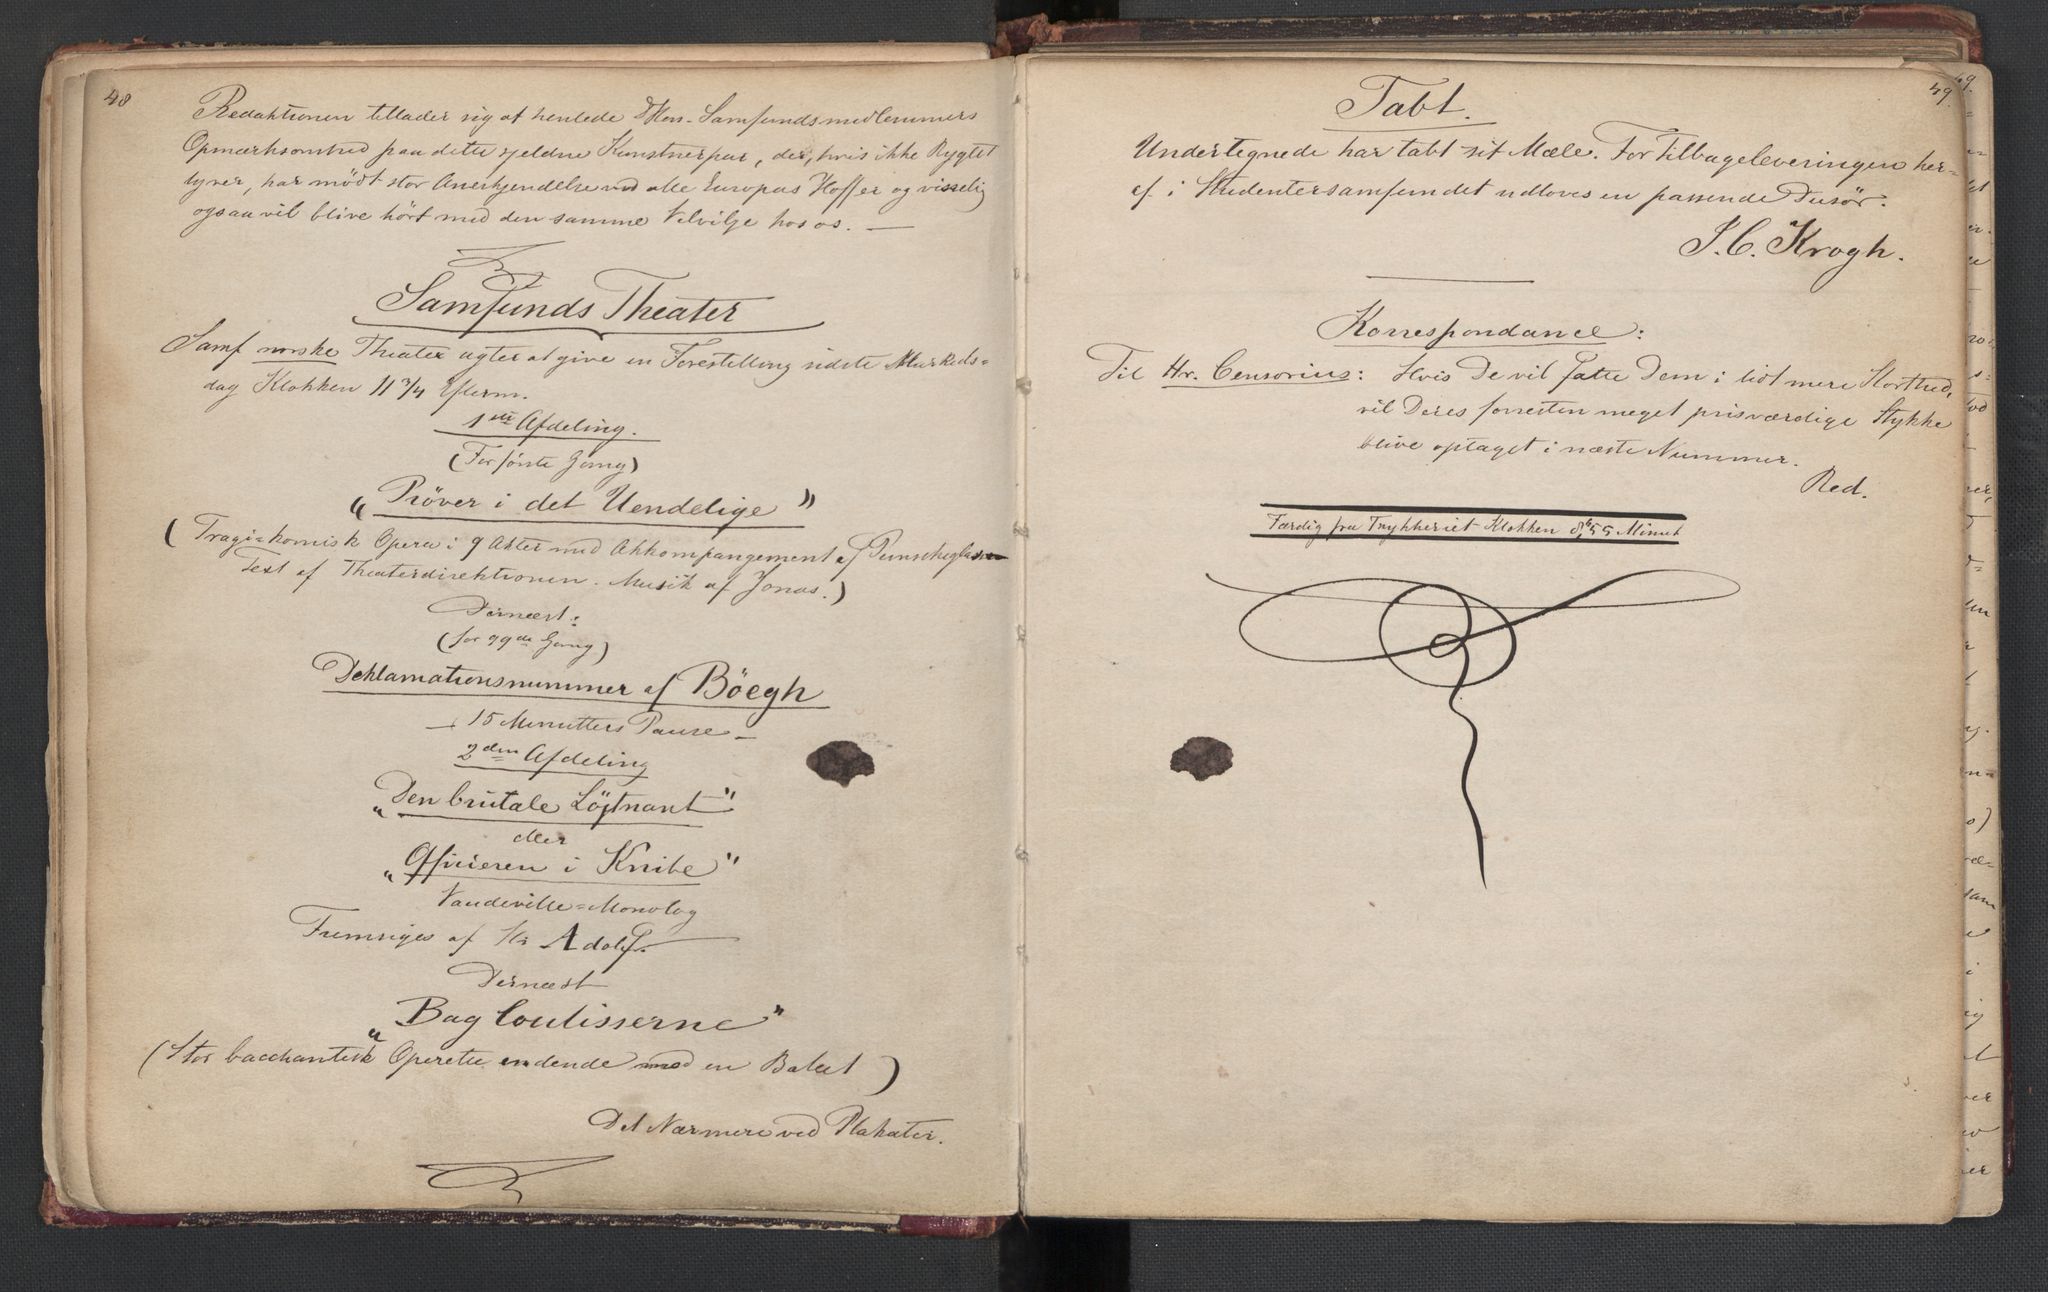 48
Redaktionen tillader sig at henlede d'Hrr. Samfundsmedlemmers
Opmærksomhed paa dette sjeldne Kunstnerpar, der, hvis ikke Rygtet
lyver, har mödt stor Anerkjendelse ved alle Europas Hoffer og visselig
ogsaa vil blive hört med den samme Velvilje hos os. —
Samfunds Theater
Samf norske Theater agter at give en Forestilling sidste Markeds=
dag Klokken 11 3/4 Efterm.
1ste Afdeling.
(For förste Gang)
"Pröver i det Uendelige"
(Tragi=komisk Opera i 9 Akter med Akkompangement af Punscheglas
Text af Theaterdirektionen. Musik af Jonas.)
Dernæst:
(for 99de Gang)
Deklamationsnummer af Böegh
— 15 Minutters Pause —
2den Afdeling
"Den brutale Löjtnant"
eller
"Officieren i Knibe"
Vaudeville=Monolog
Fremsiges af Hr Adolf.
Dernæst
"Bag Coulisserne"
(Stor bacchantisk Operette endende med en Balet)
Det Nærmere ved Plakater.
49.
Tabt.
Undertegnede har tabt sit Mæle. For Tilbageleveringen her=
af i Studentersamfundet udloves en passende Dusör.
J. C. Krogh.
Korrespondance:
Til Hr. Censorius: Hvis De vil fatte Dem i lidt mere Korthed,
vil Deres forresten meget prisværdige Stykke
blive optaget i næste Nummer.
Red.
Færdig fra Trykkeriet Klokken 8, 55 Minut